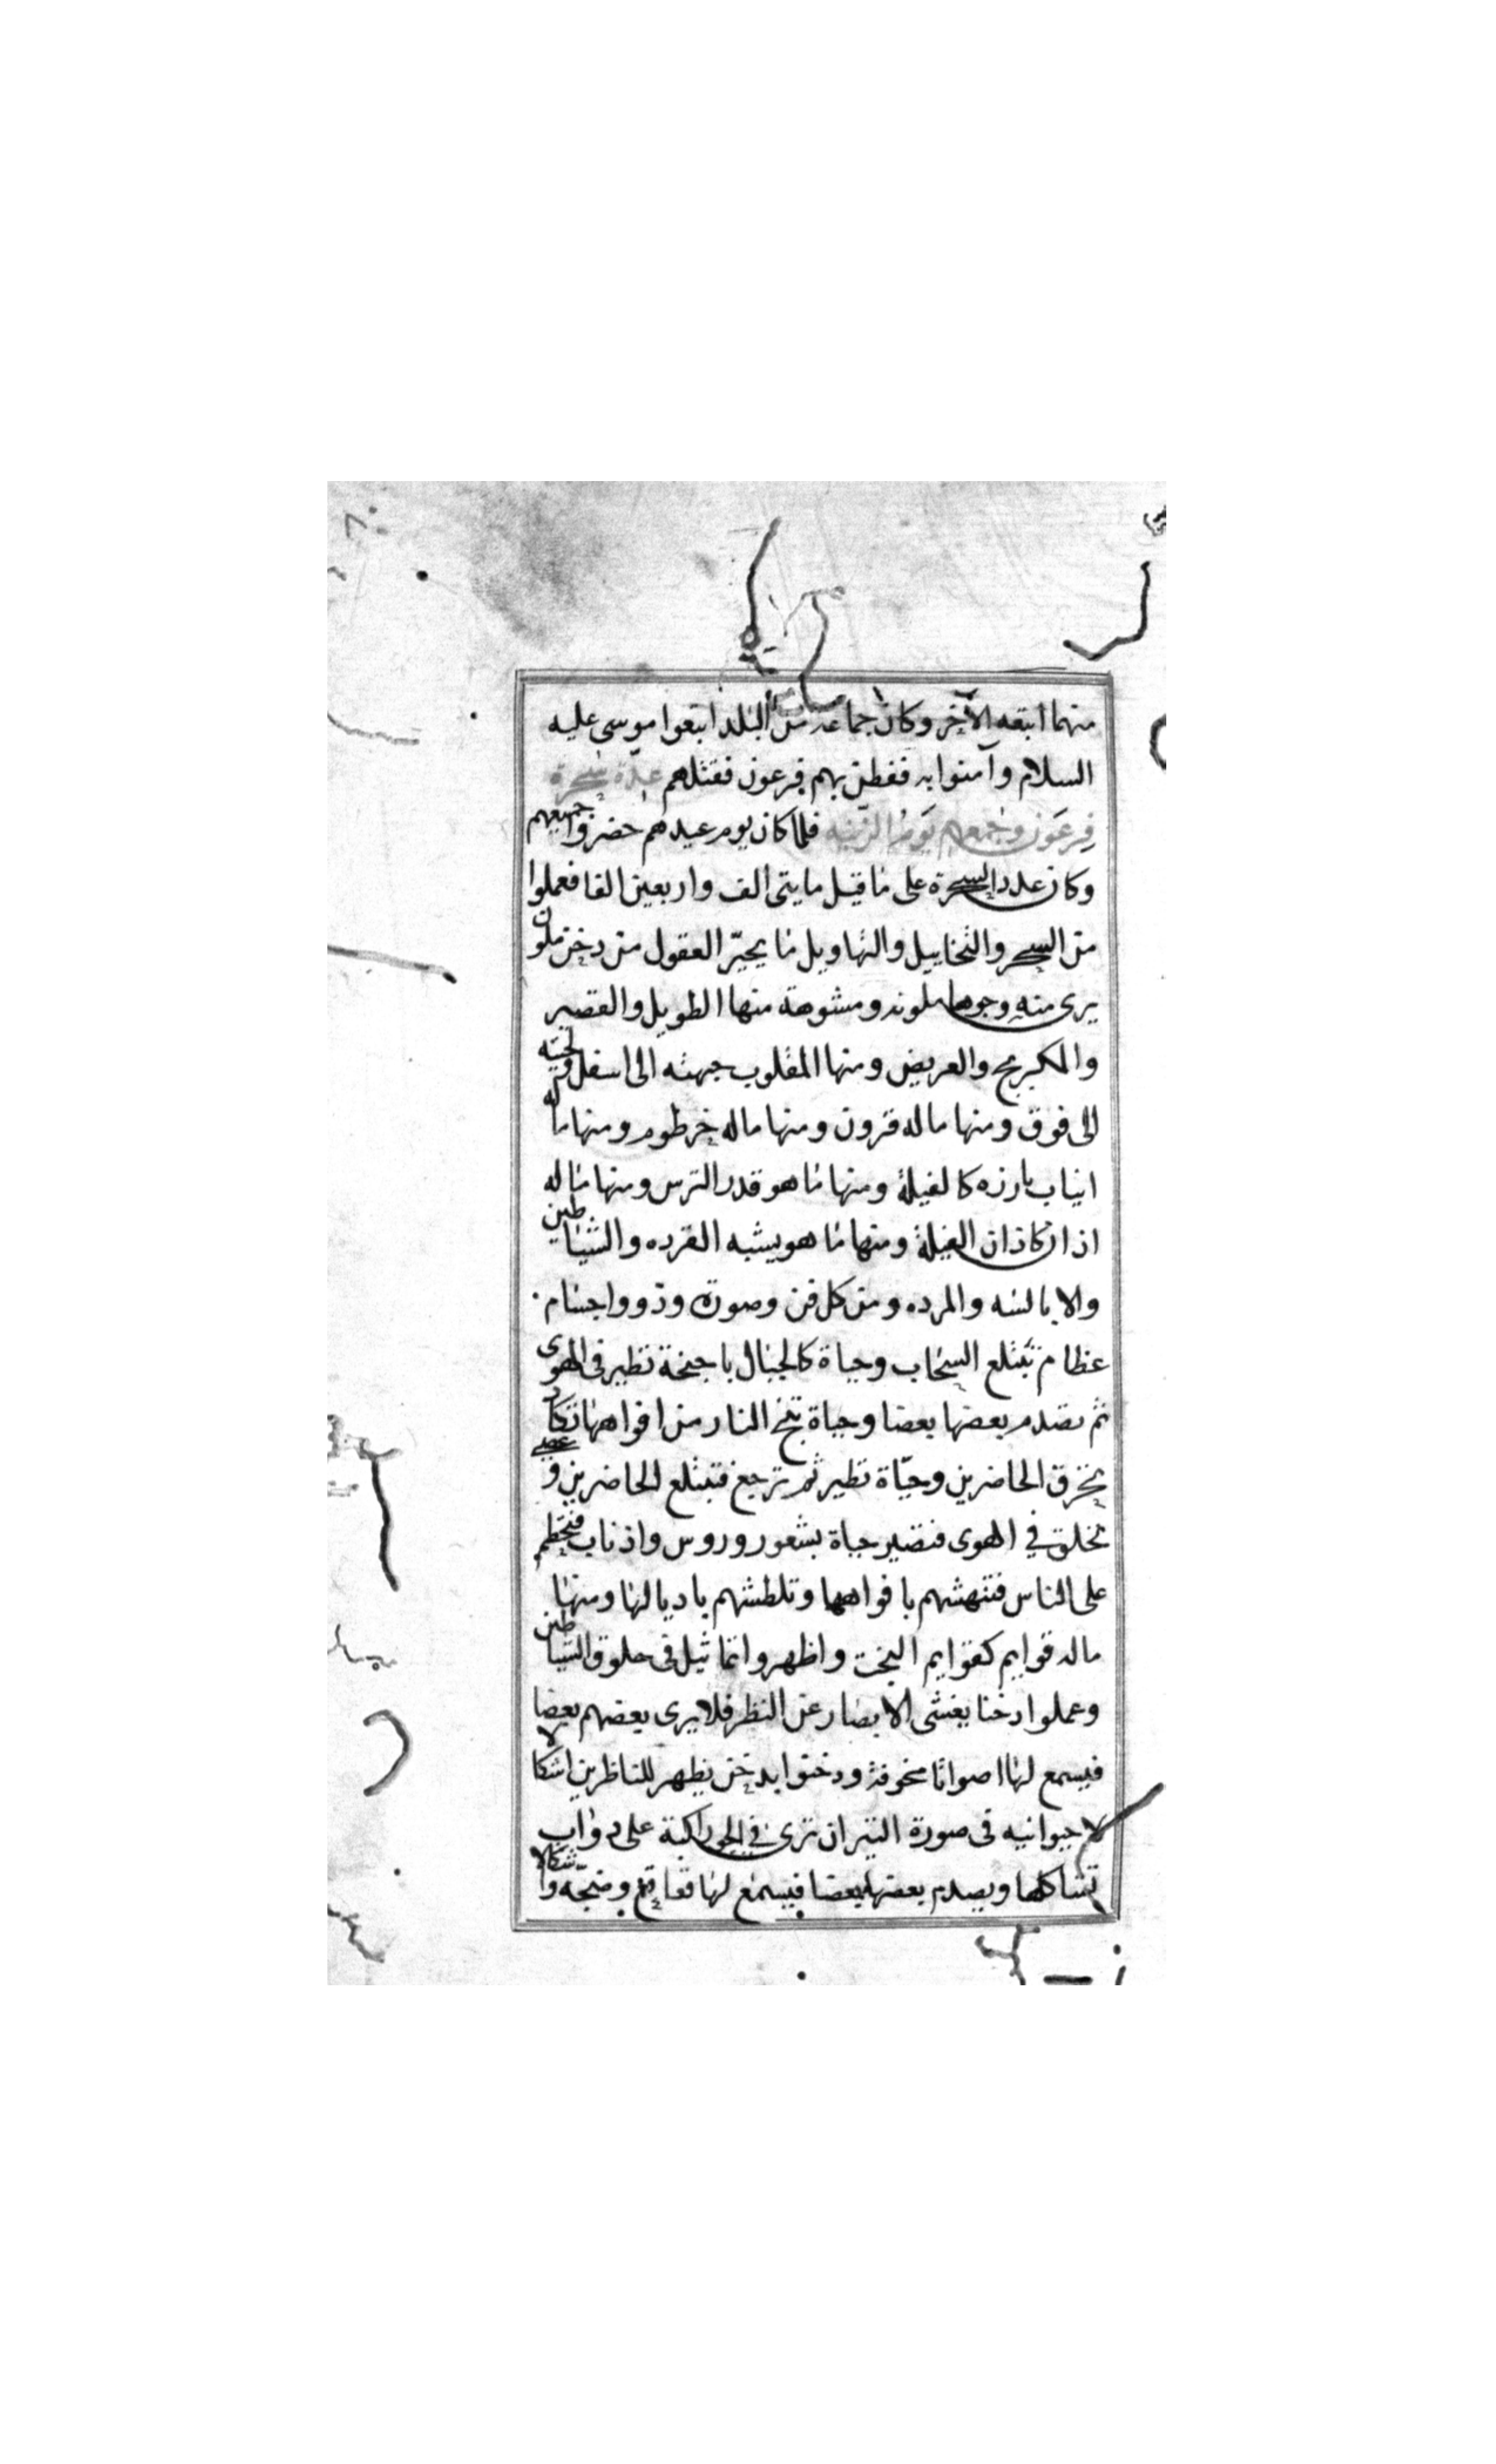 منهما اتبعه الآخر وكان جماعة من البلد اتبعوا موسى عليه
السلام وآمنوا به ففطن بهم فرعون فقتلهم عدّة سحرة
فرعون وجمعهم يوم الزينه فلما كان يوم عيدهم حضروا جميعهم
وكان عدد السحرة على ما قيل مايتى الف واربعين الفا فعملوا
من السحر والتخاييل والتهاويل ما يحيّر العقول من دخن ملون
يرى منه وجوها ملونه ومشوهة منها الطويل والقصير
والعريض ومنها المقلوب جبهته الى اسفل ولحيته
الى فوق ومنها ماله قرون ومنها ماله خرطوم ومنها ما له
انياب بارزه كالفيلة ومنها ما هو قدر الترس ومنها ما له
اذان كاذان الفيلة ومنها ما هو يشبه القرده والشياطين
والابالسه والمرده ومن كل فن وصورة وذووا اجسام
عظام تبتلع السحاب وحياة كالجبال باجنحة تطير فى الهوى
ثم تصدم بعضها بعضا وحياة تخ النار من افواهها تكاد
تحرق الحاضرين وحيّاة تطير ثم ترجع فتبتلع الحاضرين وعصى
تحلق في الهوى فتصير حياة بشعور وروس واذناب فتحطم
على الناس فتنهشهم بافواهها وتلطشهم باديالها ومنها
ماله قوايم كقوايم البخت واظهروا تماثيل فى حلوق الشياطين
وعملوا دخنا يغشى الابصار عن النظر فلا يرى بعضهم بعضا
فيسمع لها اصواتا مخوفة ودخنوا بدخن يظهر للناظرين اشكالا
حيوانيه فى صورة النيران ترى في الجو راكبة على دواب
تشاكلها ويصدم بعضها بعضا فيسمع لها قعاقع وضجّه واشكالا